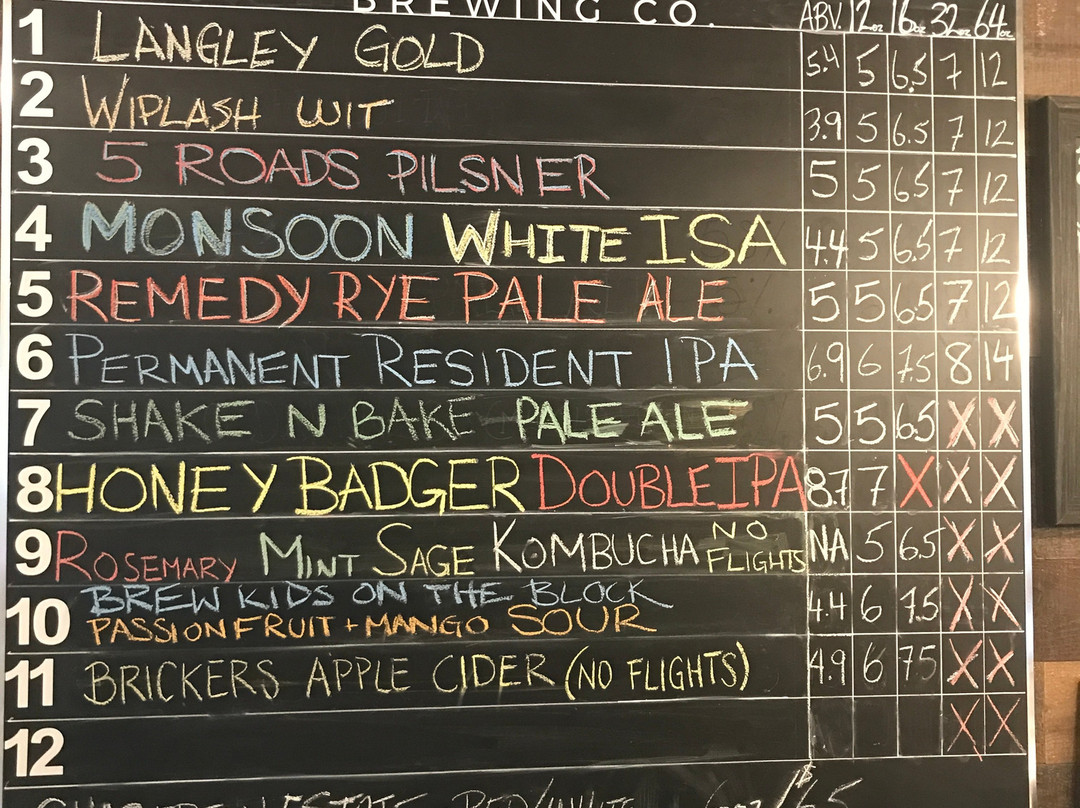 BREWING CO.
ABV. 12oz 16oz 32oz 64oz
1 LANGLEY GOLD 5.4 5 6.5 7 12
2 WIPLASH WIT 3.9 5 6.5 7 12
3 5 ROADS PILSNER 5 5 6.5 7 12
4 MONSOON WHITE ISA 4.4 5 6.5 7 12
5 REMEDY RYE PALE ALE 5 5 6.5 7 12
6 PERMANENT RESIDENT IPA 6.9 6 7.5 8 14
7 SHAKE N BAKE PALE ALE 5 5 6.5 X X
8 HONEY BADGER DOUBLE IPA 8.7 7 X X X
9 ROSEMARY MINT SAGE KOMBUCHA NO FLIGHTS NA 5 6.5 X X
10 BREW KIDS ON THE BLOCK
PASSIONFRUIT + MANGO SOUR 4.4 6 7.5 X X
11 BRICKERS APPLE CIDER (NO FLIGHTS) 4.9 6 7.5 X X
12 X X
RED/WHITE